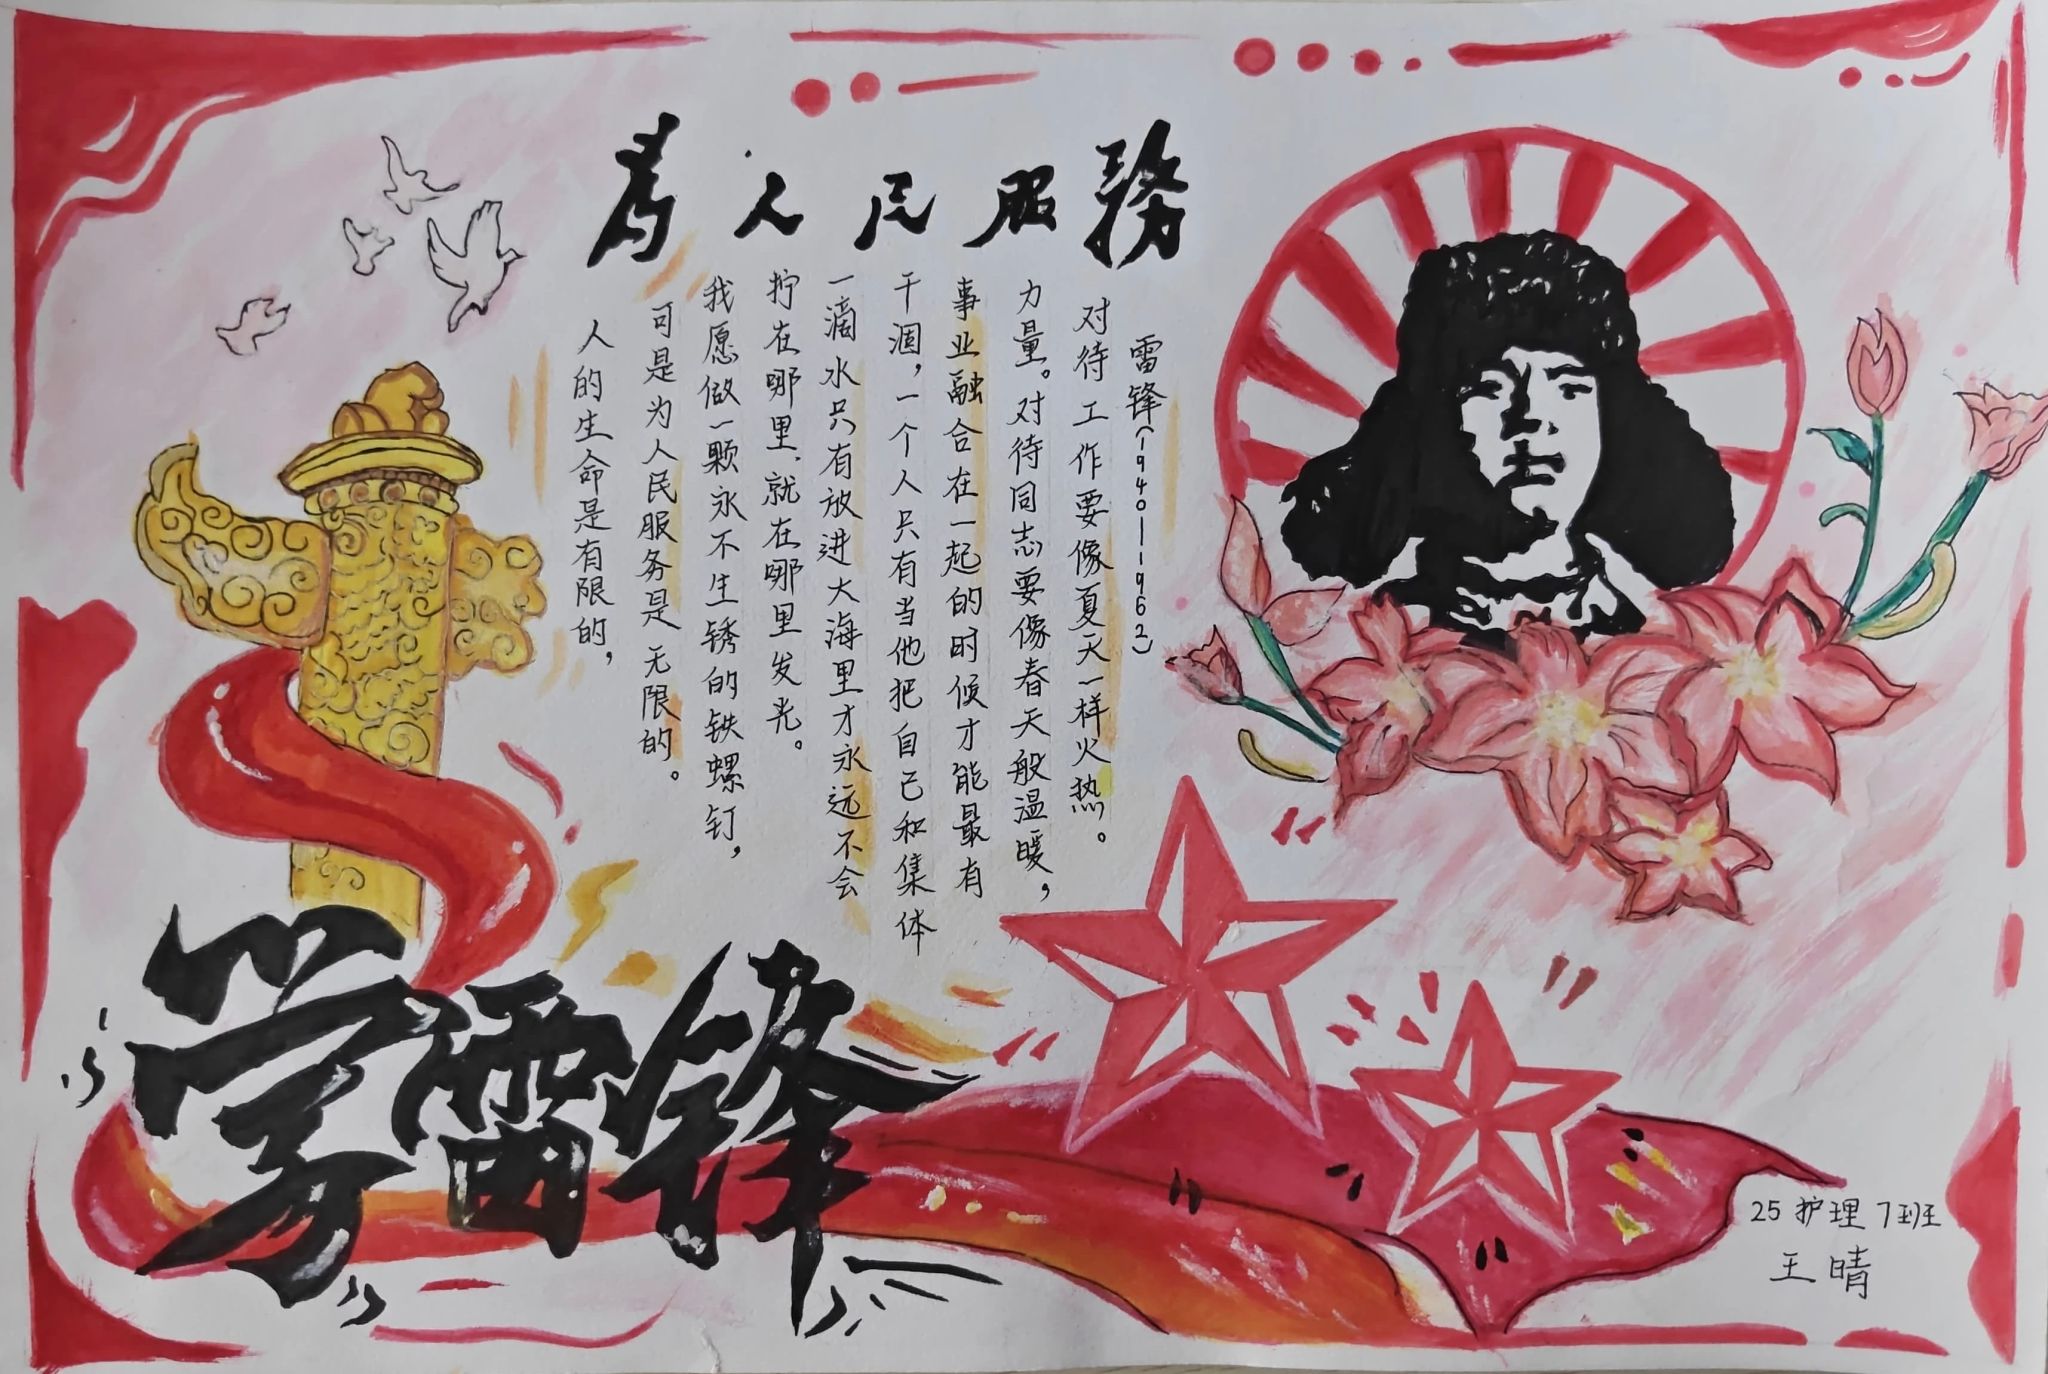 為人民服務
人的生命是有限的，
可是为人民服务是无限的。
我愿做一颗永不生锈的铁螺钉，
拧在哪里、就在哪里发光。
一滴水只有放进大海里才永远不会
干涸，一个人只有当他把自己和集体
事业融合在一起的时候才能最有
力量。对待同志要像春天般温暖，
对待工作要像夏天一样火热。
雷锋(1940—1962)
学雷锋
25护理7班
王晴